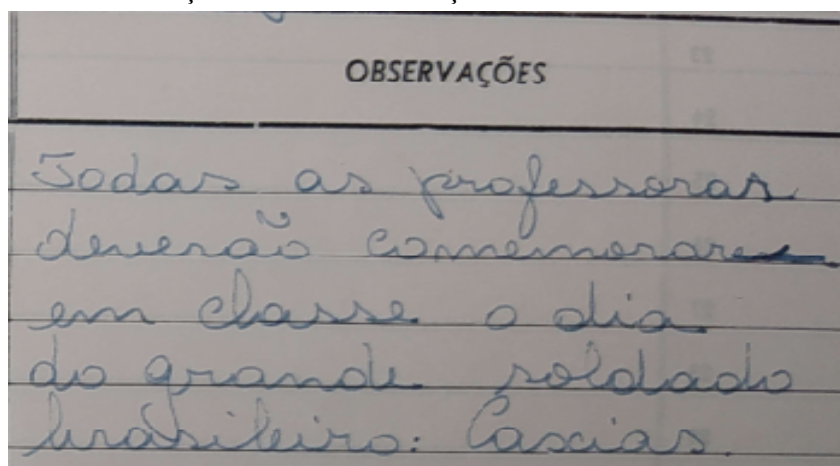 OBSERVAÇÕES
Todas as professoras
deverão comemorar
em classe o dia
do grande soldado
brasileiro: Caxias.